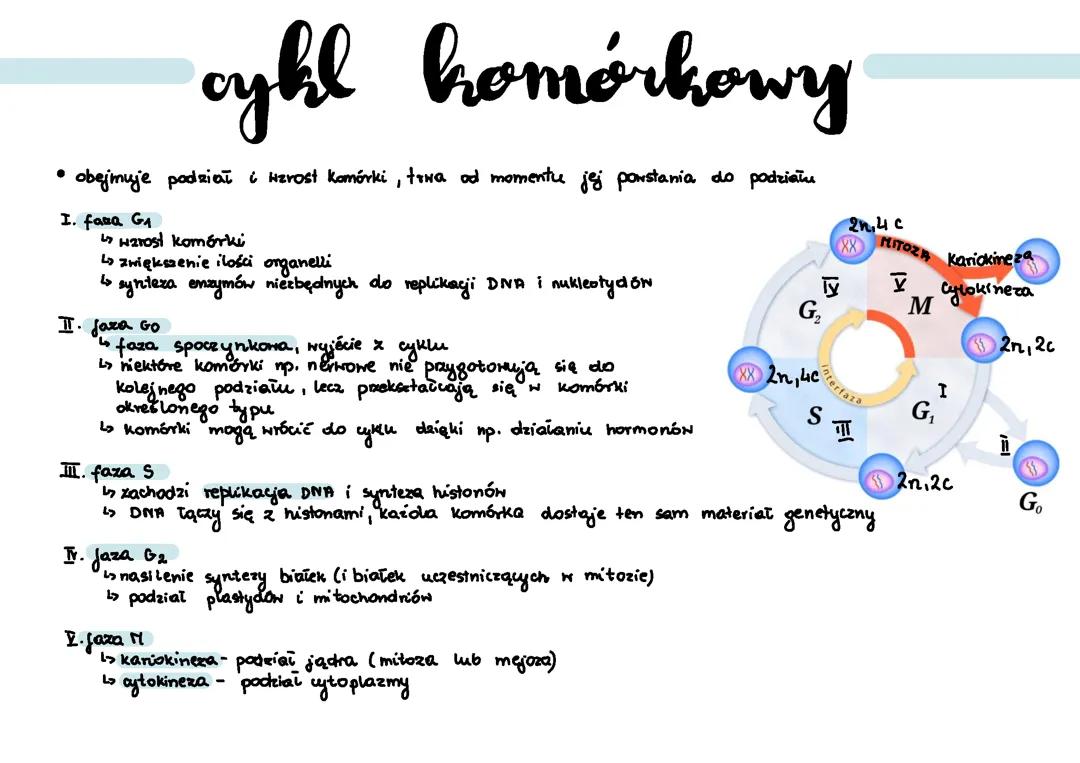 cykl komórkowy
• obejmuje podział i wzrost komórki, trwa od momentu jej powstania do podziału
I. faza G₁
↳ wzrost komórki
↳ zwiększenie ilości organelli
↳ synteza enzymów niezbędnych do replikacji DNA i nukleotydów
II. faza G0
↳ faza spoczynkowa, wyjście z cyklu
↳ niektóre komórki np. nerwowe nie przygotowują się do
kolejnego podziału, lecz przekształcają się w komórki
określonego typu
↳ komórki mogą wrócić do cyklu dzięki np. działaniu hormonów
III. faza S
↳ zachodzi replikacja DNA i synteza histonów
↳ DNA łączy się z histonami, każda komórka dostaje ten sam materiał genetyczny
IV. faza G₂
↳ nasilenie syntezy białek (i białek uczestniczących w mitozie)
↳ podział plastydów i mitochondriów
V. faza M
↳ kariokineza - podział jądra (mitoza lub mejoza)
↳ cytokineza - podział cytoplazmy
2n, 4c
MITOZA
Kariokineza
Cytokineza
IV
V
G₂
M
2n, 2c
2n, 4c
interfaza
I
S
III
G₁
II
2n, 2c
G₀